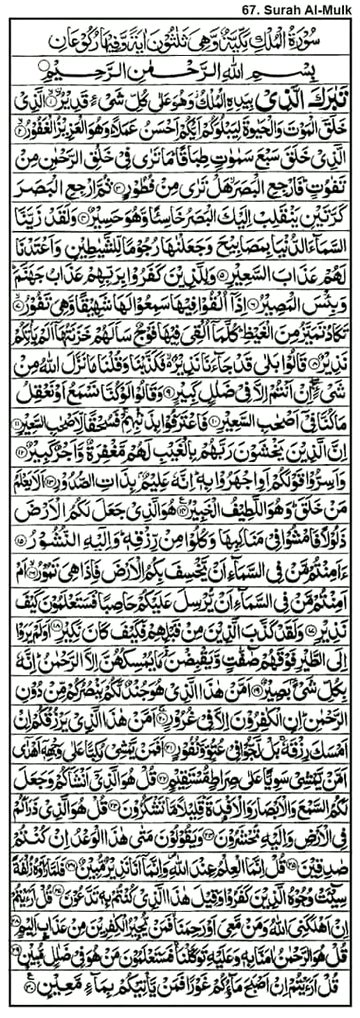 67. Surah Al-Mulk
سُوْرَةُ الْمُلْكِ مَكِّيَّةٌ وَّهِيَ ثَلٰثُوْنَ اٰيَةً وَّفِيْهَا رُكُوْعَانِ
بِسْمِ اللّٰهِ الرَّحْمٰنِ الرَّحِيْمِ
تَبٰرَكَ الَّذِيْ بِيَدِهِ الْمُلْكُ وَهُوَ عَلٰى كُلِّ شَيْءٍ قَدِيْرُ ۙ﴿۱﴾ الَّذِيْ
خَلَقَ الْمَوْتَ وَالْحَيٰوةَ لِيَبْلُوَكُمْ اَيُّكُمْ اَحْسَنُ عَمَلًا ؕ وَهُوَ الْعَزِيْزُ الْغَفُوْرُ ۙ﴿۲﴾
الَّذِيْ خَلَقَ سَبْعَ سَمٰوٰتٍ طِبَاقًا ؕ مَا تَرٰى فِيْ خَلْقِ الرَّحْمٰنِ مِنْ
تَفٰوُتٍ ؕ فَارْجِعِ الْبَصَرَ ۙ هَلْ تَرٰى مِنْ فُطُوْرٍ ﴿۳﴾ ثُمَّ ارْجِعِ الْبَصَرَ
كَرَّتَيْنِ يَنْقَلِبْ اِلَيْكَ الْبَصَرُ خَاسِئًا وَّهُوَ حَسِيْرٌ ﴿۴﴾ وَلَقَدْ زَيَّنَّا
السَّمَآءَ الدُّنْيَا بِمَصَابِيْحَ وَجَعَلْنٰهَا رُجُوْمًا لِّلشَّيٰطِيْنِ وَاَعْتَدْنَا
لَهُمْ عَذَابَ السَّعِيْرِ ﴿۵﴾ وَلِلَّذِيْنَ كَفَرُوْا بِرَبِّهِمْ عَذَابُ جَهَنَّمَ ؕ
وَبِئْسَ الْمَصِيْرُ ﴿۶﴾ اِذَاۤ اُلْقُوْا فِيْهَا سَمِعُوْا لَهَا شَهِيْقًا وَّهِيَ تَفُوْرُ ۙ﴿۷﴾
تَكَادُ تَمَيَّزُ مِنَ الْغَيْظِ ؕ كُلَّمَاۤ اُلْقِيَ فِيْهَا فَوْجٌ سَاَلَهُمْ خَزَنَتُهَاۤ اَلَمْ يَاْتِكُمْ
نَذِيْرٌ ﴿۸﴾ قَالُوْا بَلٰى قَدْ جَآءَنَا نَذِيْرٌ ۙ فَكَذَّبْنَا وَقُلْنَا مَا نَزَّلَ اللّٰهُ مِنْ
شَيْءٍ ۚ اِنْ اَنْتُمْ اِلَّا فِيْ ضَلٰلٍ كَبِيْرٍ ﴿۹﴾ وَقَالُوْا لَوْ كُنَّا نَسْمَعُ اَوْ نَعْقِلُ
مَا كُنَّا فِيْۤ اَصْحٰبِ السَّعِيْرِ ﴿۱۰﴾ فَاعْتَرَفُوْا بِذَنْۢبِهِمْ ۚ فَسُحْقًا لِّاَصْحٰبِ السَّعِيْرِ ﴿۱۱﴾
اِنَّ الَّذِيْنَ يَخْشَوْنَ رَبَّهُمْ بِالْغَيْبِ لَهُمْ مَّغْفِرَةٌ وَّاَجْرٌ كَبِيْرٌ ﴿۱۲﴾
وَاَسِرُّوْا قَوْلَكُمْ اَوِ اجْهَرُوْا بِهٖ ؕ اِنَّهٗ عَلِيْمٌۢ بِذَاتِ الصُّدُوْرِ ﴿۱۳﴾ اَلَا يَعْلَمُ
مَنْ خَلَقَ ؕ وَهُوَ اللَّطِيْفُ الْخَبِيْرُ ﴿۱۴﴾ هُوَ الَّذِيْ جَعَلَ لَكُمُ الْاَرْضَ
ذَلُوْلًا فَامْشُوْا فِيْ مَنَاكِبِهَا وَكُلُوْا مِنْ رِّزْقِهٖ ؕ وَاِلَيْهِ النُّشُوْرُ ﴿۱۵﴾
ءَاَمِنْتُمْ مَّنْ فِي السَّمَآءِ اَنْ يَّخْسِفَ بِكُمُ الْاَرْضَ فَاِذَا هِيَ تَمُوْرُ ﴿۱۶﴾ اَمْ
اَمِنْتُمْ مَّنْ فِي السَّمَآءِ اَنْ يُّرْسِلَ عَلَيْكُمْ حَاصِبًا ؕ فَسَتَعْلَمُوْنَ كَيْفَ
نَذِيْرِ ﴿۱۷﴾ وَلَقَدْ كَذَّبَ الَّذِيْنَ مِنْ قَبْلِهِمْ فَكَيْفَ كَانَ نَكِيْرِ ﴿۱۸﴾ اَوَلَمْ يَرَوْا
اِلَى الطَّيْرِ فَوْقَهُمْ صٰٓفّٰتٍ وَّيَقْبِضْنَ ؔ مَا يُمْسِكُهُنَّ اِلَّا الرَّحْمٰنُ ؕ اِنَّهٗ
بِكُلِّ شَيْءٍۢ بَصِيْرٌ ﴿۱۹﴾ اَمَّنْ هٰذَا الَّذِيْ هُوَ جُنْدٌ لَّكُمْ يَنْصُرُكُمْ مِّنْ دُوْنِ
الرَّحْمٰنِ ؕ اِنِ الْكٰفِرُوْنَ اِلَّا فِيْ غُرُوْرٍ ﴿۲۰﴾ اَمَّنْ هٰذَا الَّذِيْ يَرْزُقُكُمْ اِنْ
اَمْسَكَ رِزْقَهٗ ۚ بَلْ لَّجُّوْا فِيْ عُتُوٍّ وَّنُفُوْرٍ ﴿۲۱﴾ اَفَمَنْ يَّمْشِيْ مُكِبًّا عَلٰى وَجْهِهٖۤ اَهْدٰۤى
اَمَّنْ يَّمْشِيْ سَوِيًّا عَلٰى صِرَاطٍ مُّسْتَقِيْمٍ ﴿۲۲﴾ قُلْ هُوَ الَّذِيْۤ اَنْشَاَكُمْ وَجَعَلَ
لَكُمُ السَّمْعَ وَالْاَبْصَارَ وَالْاَفْـِٕدَةَ ؕ قَلِيْلًا مَّا تَشْكُرُوْنَ ﴿۲۳﴾ قُلْ هُوَ الَّذِيْ ذَرَاَكُمْ
فِي الْاَرْضِ وَاِلَيْهِ تُحْشَرُوْنَ ﴿۲۴﴾ وَيَقُوْلُوْنَ مَتٰى هٰذَا الْوَعْدُ اِنْ كُنْتُمْ
صٰدِقِيْنَ ﴿۲۵﴾ قُلْ اِنَّمَا الْعِلْمُ عِنْدَ اللّٰهِ ۪ وَاِنَّمَاۤ اَنَا نَذِيْرٌ مُّبِيْنٌ ﴿۲۶﴾ فَلَمَّا رَاَوْهُ زُلْفَةً
سِيْٓـَٔتْ وُجُوْهُ الَّذِيْنَ كَفَرُوْا وَقِيْلَ هٰذَا الَّذِيْ كُنْتُمْ بِهٖ تَدَّعُوْنَ ﴿۲۷﴾ قُلْ اَرَءَيْتُمْ
اِنْ اَهْلَكَنِيَ اللّٰهُ وَمَنْ مَّعِيَ اَوْ رَحِمَنَا ۙ فَمَنْ يُّجِيْرُ الْكٰفِرِيْنَ مِنْ عَذَابٍ اَلِيْمٍ ﴿۲۸﴾
قُلْ هُوَ الرَّحْمٰنُ اٰمَنَّا بِهٖ وَعَلَيْهِ تَوَكَّلْنَا ۚ فَسَتَعْلَمُوْنَ مَنْ هُوَ فِيْ ضَلٰلٍ مُّبِيْنٍ ﴿۲۹﴾
قُلْ اَرَءَيْتُمْ اِنْ اَصْبَحَ مَآؤُكُمْ غَوْرًا فَمَنْ يَّاْتِيْكُمْ بِمَآءٍ مَّعِيْنٍ ﴿۳۰﴾